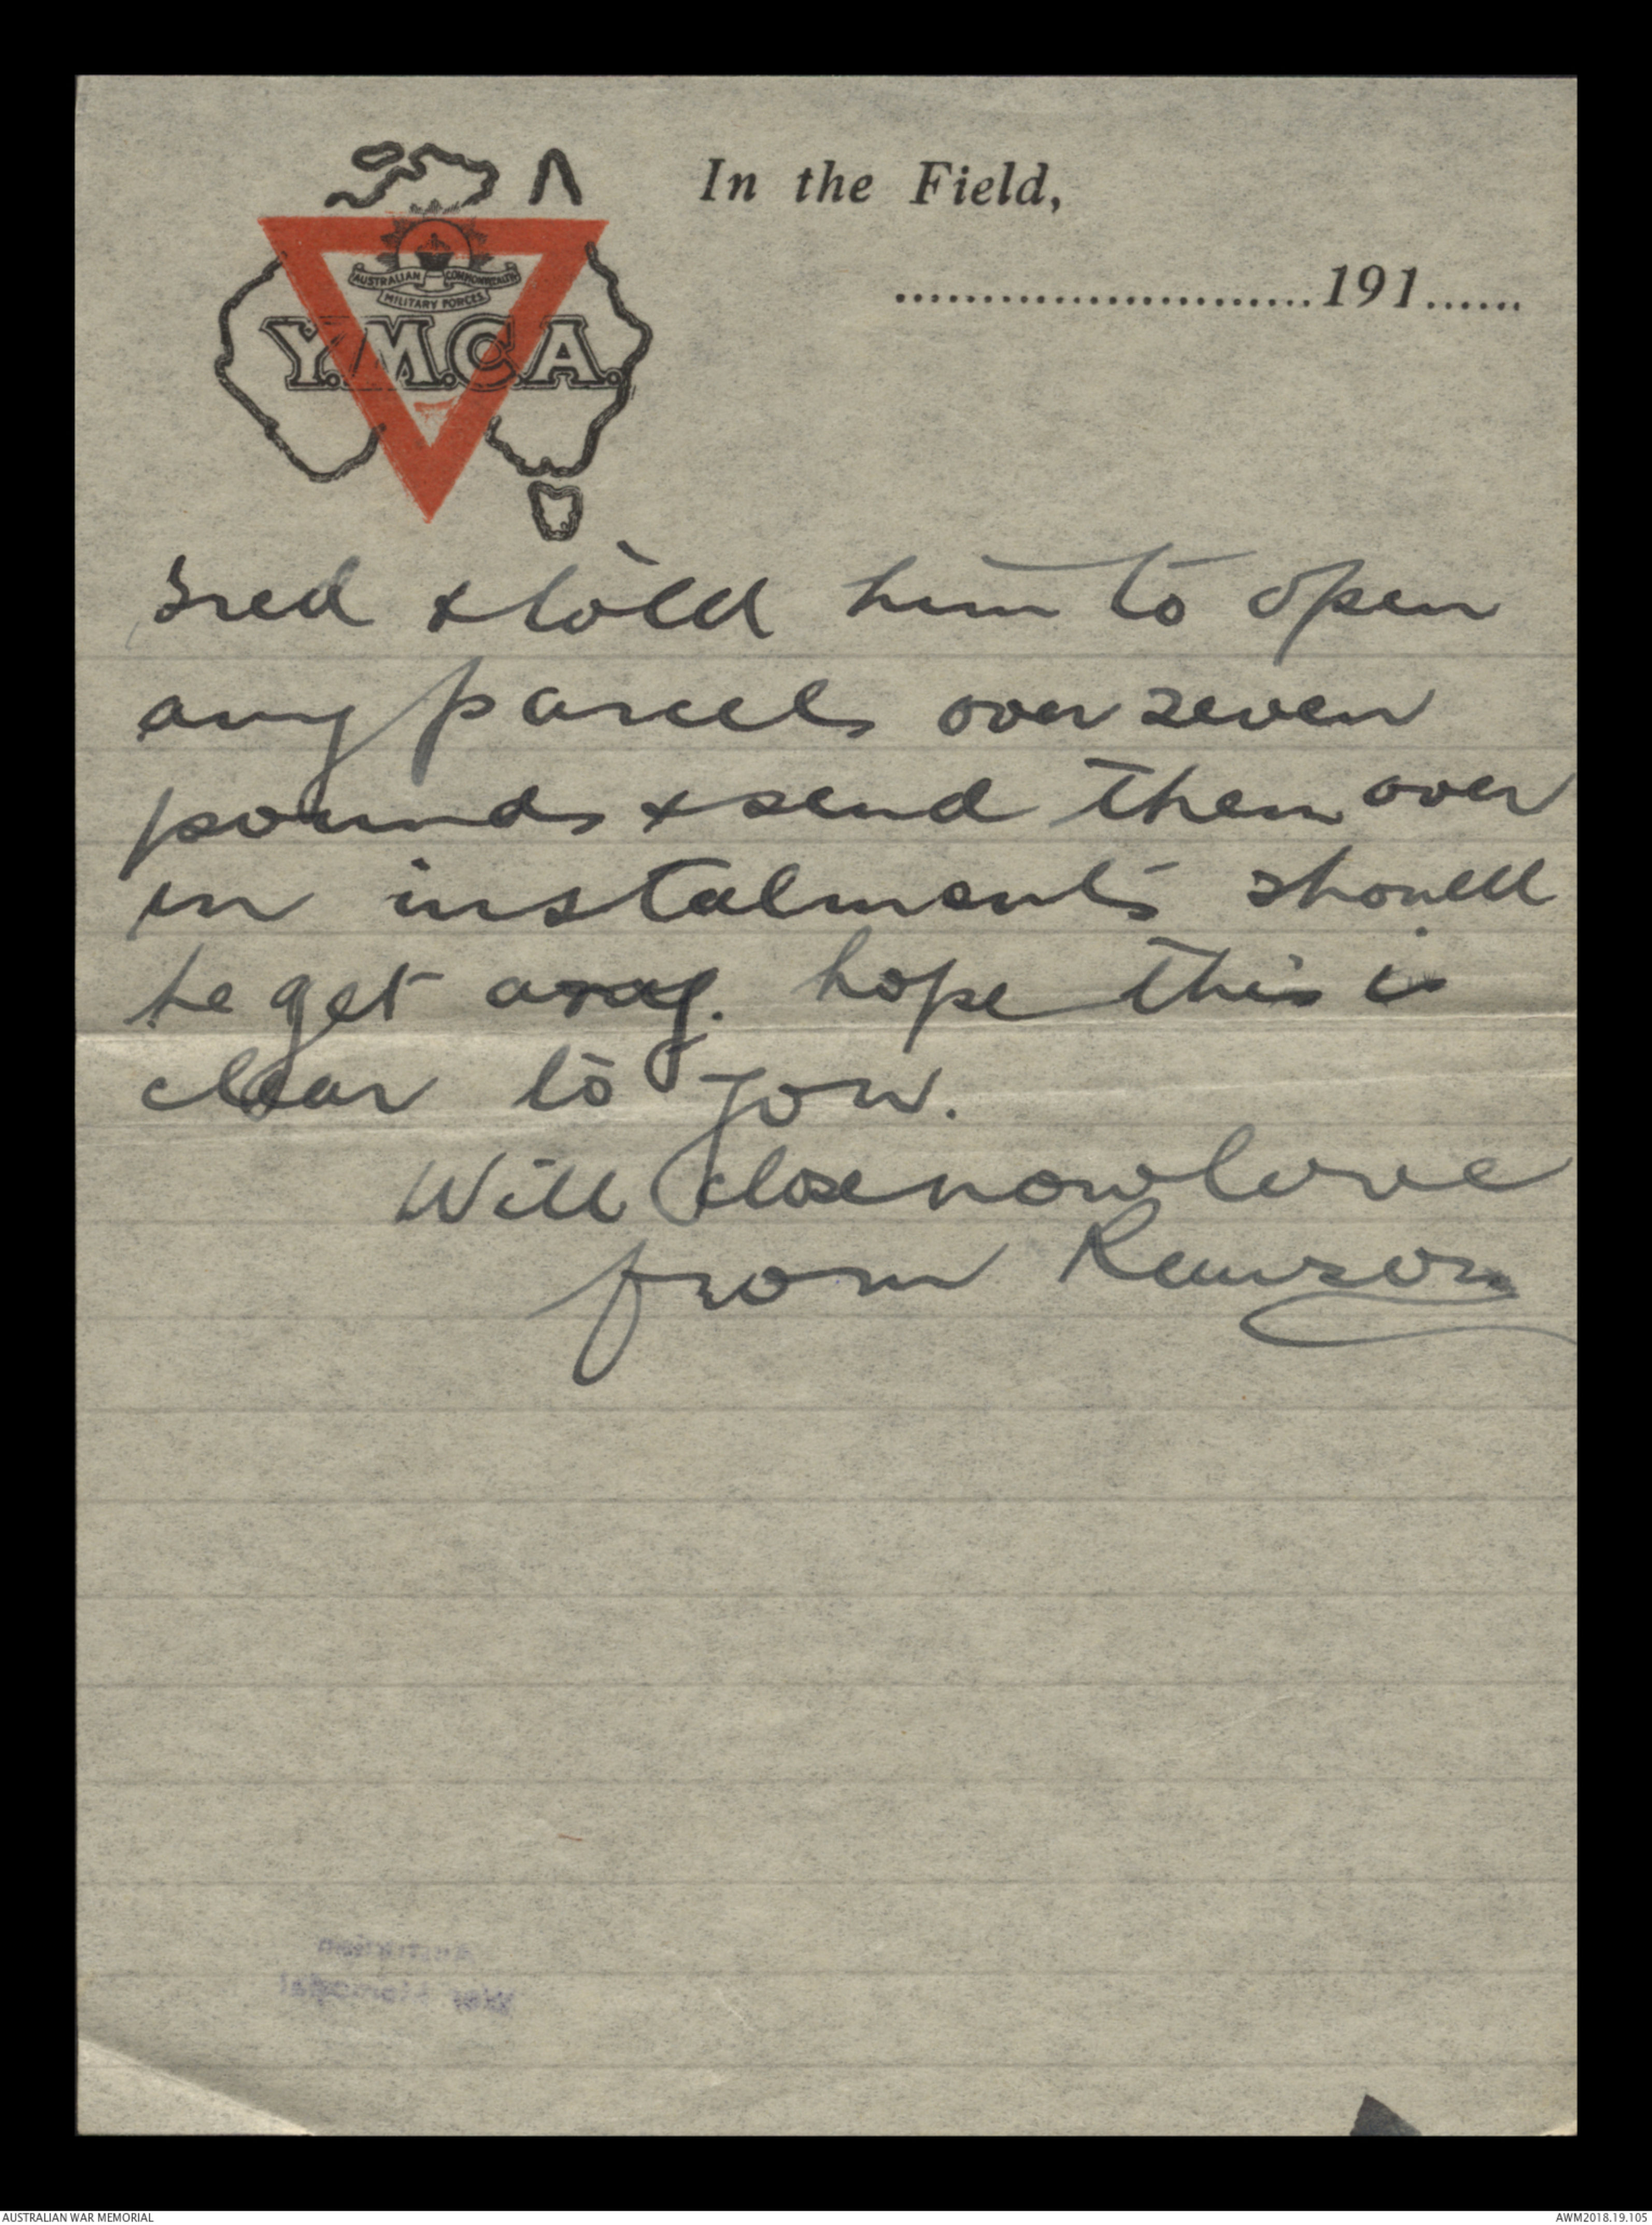 In the Field,
.........................191......
AUSTRALIAN COMMONWEALTH
MILITARY FORCES
Y.M.C.A.
Fred & told him to open
any parcels over seven
pounds & send them over
in instalments should
he get any. hope this is
clear to you.
Will close now love
from Rawson
Australian
War Memorial
AUSTRALIAN WAR MEMORIAL
AWM2018.19.105